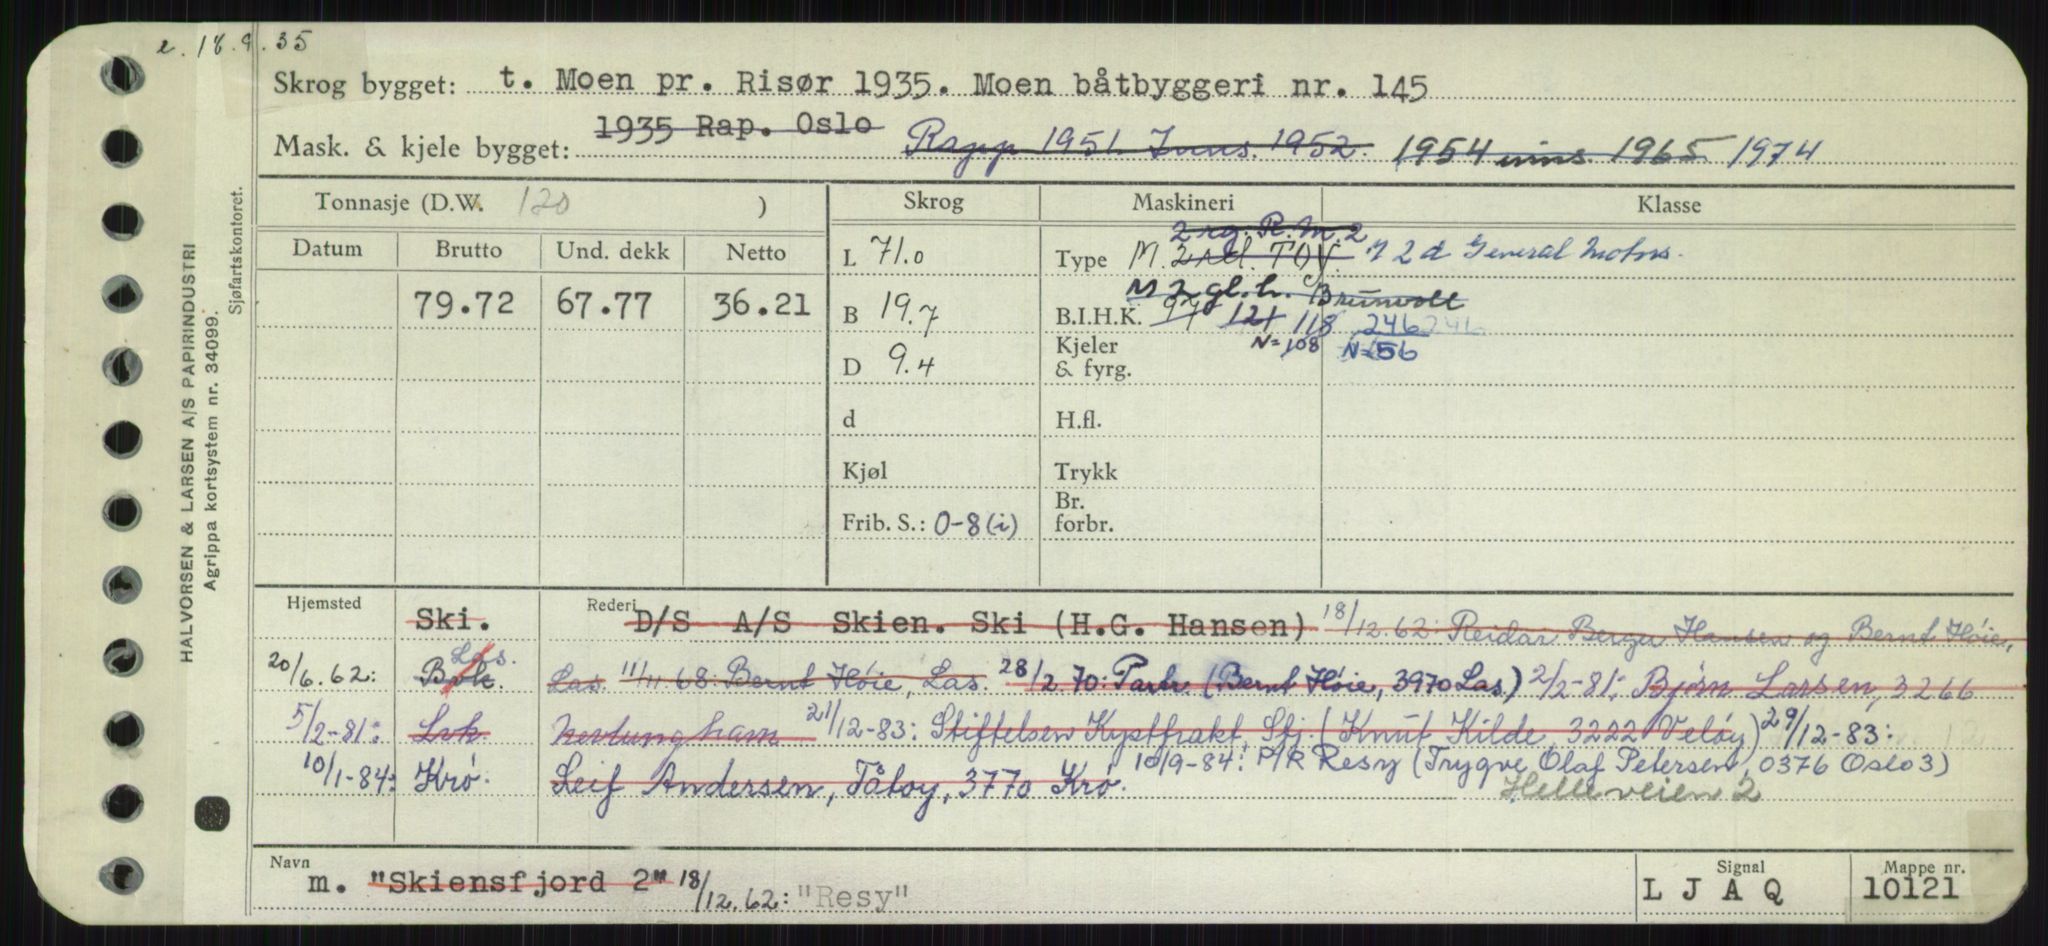 e. 18.9.35
Skrog bygget: t. Moen pr. Risør 1935. Moen båtbyggeri nr. 145
Mask. & kjele bygget: 1935 Rap. Oslo 1951. Inns. 1952. 1954 inns. 1965 1974
HALVORSEN & LARSEN A/S PAPIRINDUSTRI
Agrippa kortsystem nr. 34099.
Sjøfartskontoret.
Tonnasje (D.W. 120 ) Skrog Maskineri Klasse
Datum Brutto Und. dekk Netto
79.72 67.77 36.21
L 71.0
B 19.7
D 9.4
d
Kjøl
Frib. S.: 0-8 (i)
2 rg. R.M. 2
Type M. T 2 d General Motors.
M 2 gl.h. Brunvoll
B.I.H.K. 97 121 118 246 246
N=108 N=56
Kjeler & fyrg.
H.fl.
Trykk
Br. forbr.
Hjemsted Rederi
Ski. D/S A/S Skien. Ski (H.G. Hansen) 18/12.62: Reidar Berger Hansen og Bernt Høie,
20/6.62: Brk. Las. Las. 11/11 68: Bernt Høie, Las. 28/2.70: Partr. (Bernt Høie, 3970 Las.) 2/2-81: Bjørn Larsen, 3266
5/2-81: Lvk. Nevlungham 21/12-83: Stiftelsen Kystfrakt, Sfj. (Knut Kilde, 3222 Veløy) 29/12-83:
10/1-84: Krø. Leif Andersen, Tåtøy, 3770 Krø. 10/9-84: P/R Resy (Trygve Olaf Petersen, 0376 Oslo 3)
Helleveien 2
Navn m. "Skiensfjord 2" 18/12.62: "Resy"
Signal L J A Q
Mappe nr. 10121